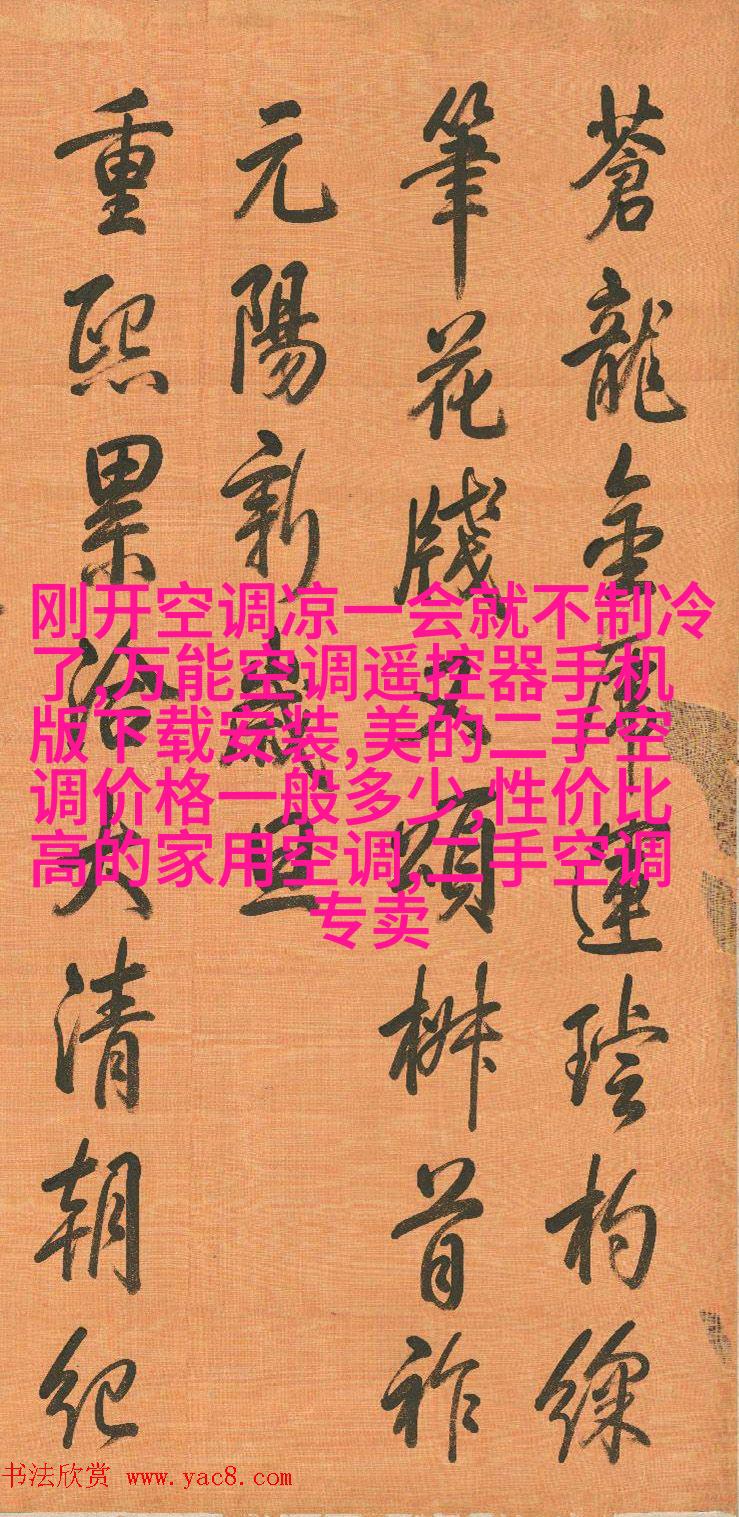 蒼龍金運璿杓
筆花牋頌椒首祚
元陽新歲
重熙累洽大清朝紀
刚开空调凉一会就不制冷
了,万能空调遥控器手机
版下载安装,美的二手空
调价格一般多少,性价比
高的家用空调,二手空调
专卖
书法欣赏 www.yac8.com